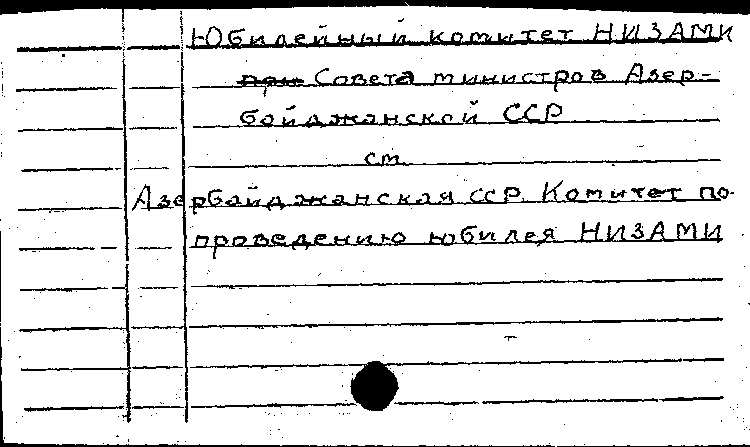 Юбилейный комитет НИЗАМИ
при Совета министров Азер-
байджанской ССР
см.
Азербайджанская ССР. Комитет по
проведению юбилея НИЗАМИ